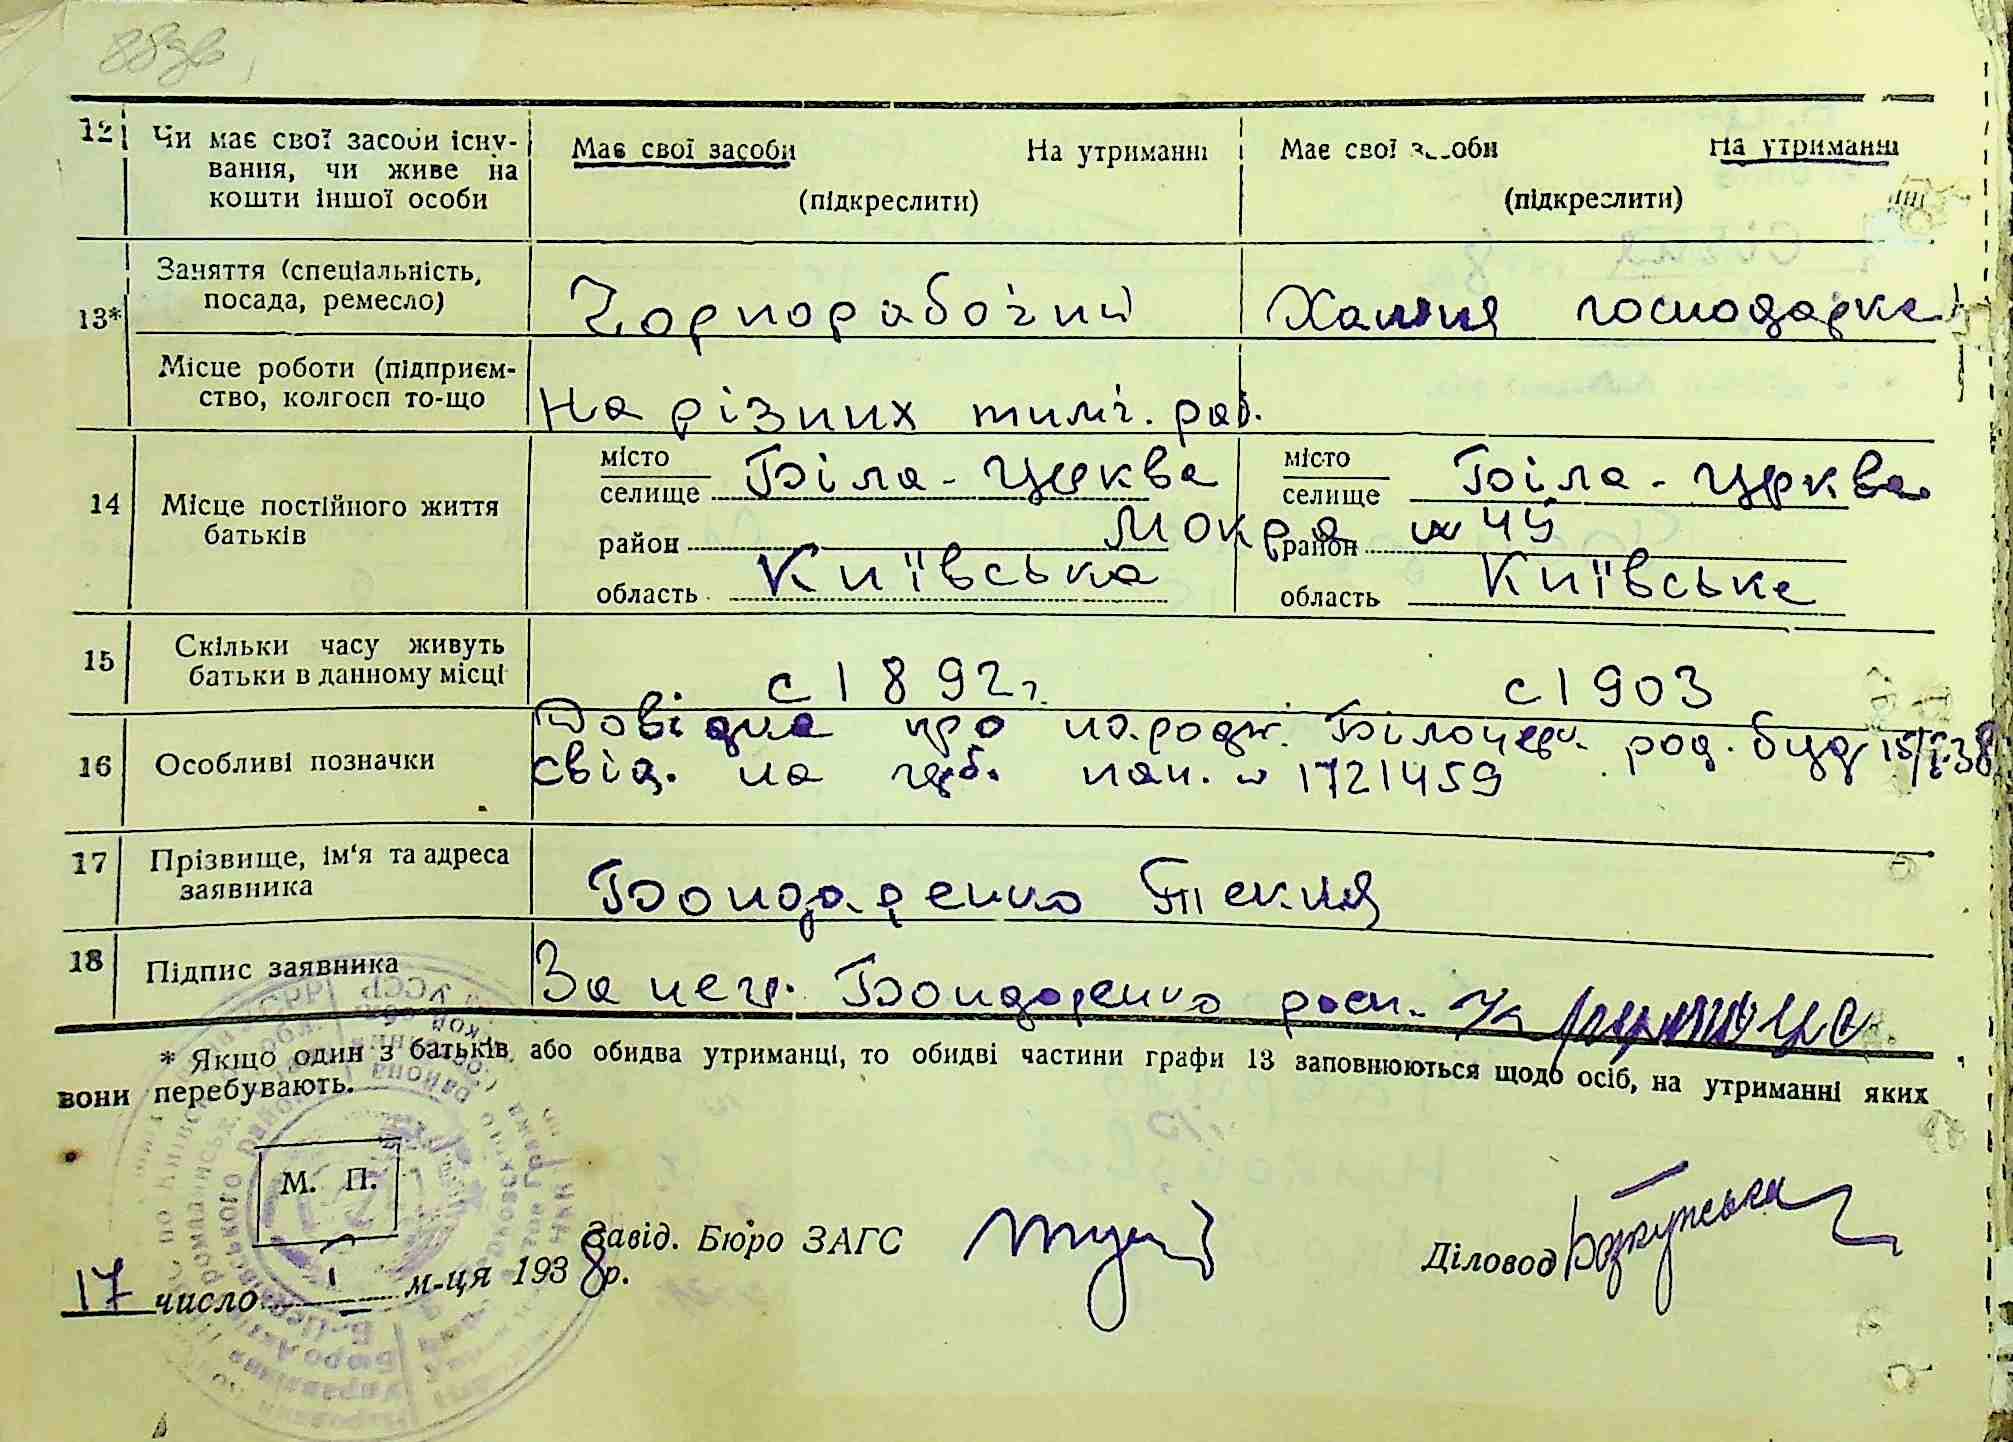 88зв
12 Чи має свої засоби існу-
вання, чи живе на
кошти іншої особи
Має свої засоби На утриманні
(підкреслити)
Має свої засоби На утриманні
(підкреслити)
13* Заняття (спеціальність,
посада, ремесло)
Чорнорабочий
Хатня господарка
Місце роботи (підприєм-
ство, колгосп то-що
На різних тимч. роб.
14 Місце постійного життя
батьків
місто
селище Біла-Церква
район Мокра № 49
область Київська
місто
селище Біла-Церква
район
область Київська
15 Скільки часу живуть
батьки в данному місці
с 1892 г.
с 1903
16 Особливі позначки
Довідка про народж. Білоцерк. род. буд 15/I-38
свід. на гр. № 1721459
17 Прізвище, ім'я та адреса
заявника
Бондаренко Текля
18 Підпис заявника
За негр. Бондаренко расп.
* Якщо один з батьків або обидва утриманці, то обидві частини графи 13 заповнюються щодо осіб, на утриманні яких
вони перебувають.
М. П.
17 число 1 м-ця 1938 р.
Завід. Бюро ЗАГС
Діловод